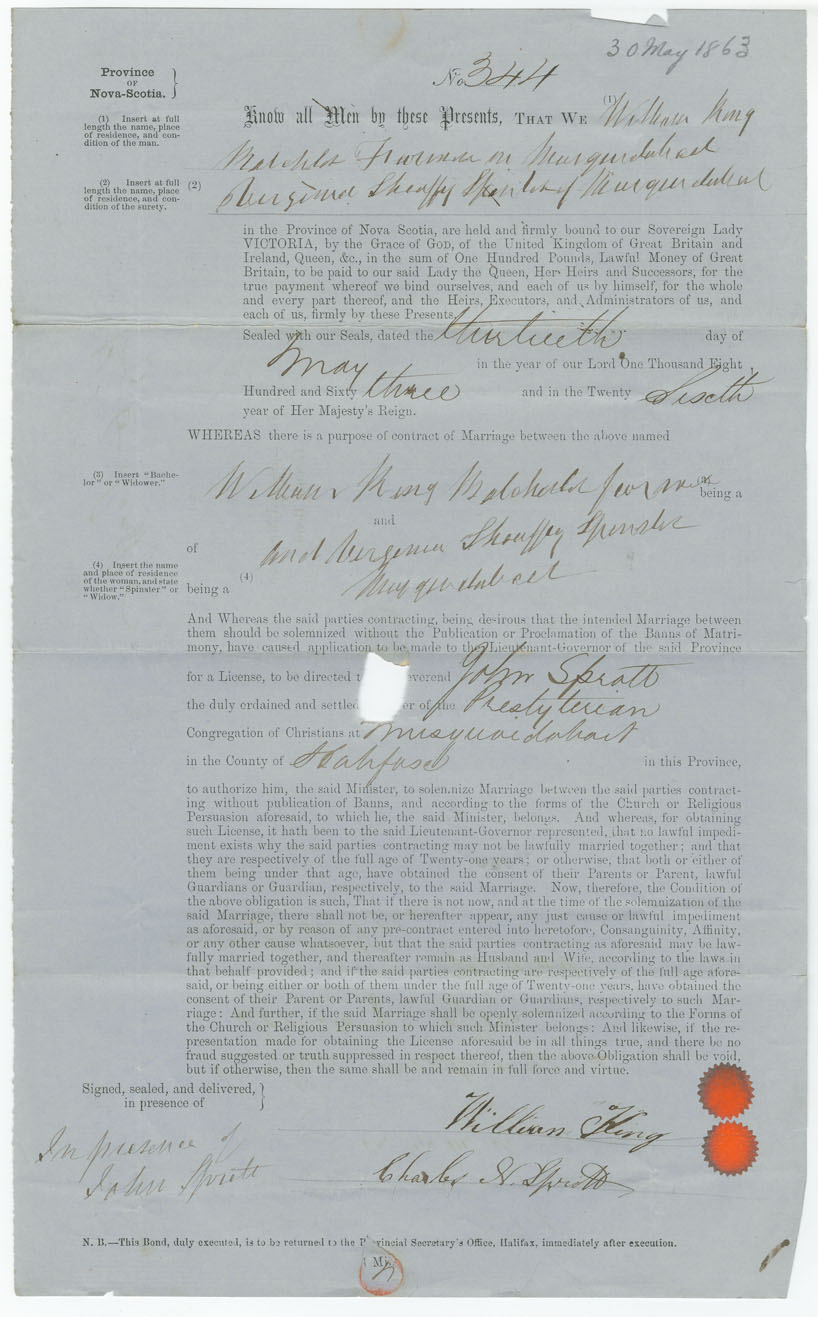 30 May 1863
Province
OF
Nova-Scotia.
No 344
(1) Insert at full
length the name, place
of residence, and con-
dition of the man.
Know all Men by these Presents, THAT WE (1) William King
on Musquodoboit
(2) Insert at full
length the name, place
of residence, and con-
dition of the surety.
(2) Spinster of Musquodoboit
in the Province of Nova Scotia, are held and firmly bound to our Sovereign Lady
VICTORIA, by the Grace of GOD, of the United Kingdom of Great Britain and
Ireland, Queen, &c., in the sum of One Hundred Pounds, Lawful Money of Great
Britain, to be paid to our said Lady the Queen, Her Heirs and Successors, for the
true payment whereof we bind ourselves, and each of us by himself, for the whole
and every part thereof, and the Heirs, Executors, and Administrators of us, and
each of us, firmly by these Presents.
Sealed with our Seals, dated the thirtieth day of
May in the year of our Lord One Thousand Eight
Hundred and Sixty three and in the Twenty Sixth
year of Her Majesty's Reign.
WHEREAS there is a purpose of contract of Marriage between the above named
(3) Insert "Bache-
lor" or "Widower."
William King being a
and
of and Spinster
(4) Insert the name
and place of residence
of the woman, and state
whether "Spinster" or
"Widow."
being a (4)
And Whereas the said parties contracting, being desirous that the intended Marriage between
them should be solemnized without the Publication or Proclamation of the Banns of Matri-
mony, have caused application to be made to the Lieutenant-Governor of the said Province
for a License, to be directed t everend John Sprott
the duly ordained and settled er of the Presbyterian
Congregation of Christians at Musquodoboit
in the County of Halifax in this Province,
to authorize him, the said Minister, to solemnize Marriage between the said parties contract-
ing without publication of Banns, and according to the forms of the Church or Religious
Persuasion aforesaid, to which he, the said Minister, belongs. And whereas, for obtaining
such License, it hath been to the said Lieutenant-Governor represented, that no lawful impedi-
ment exists why the said parties contracting may not be lawfully married together; and that
they are respectively of the full age of Twenty-one years; or otherwise, that both or either of
them being under that age, have obtained the consent of their Parents or Parent, lawful
Guardians or Guardian, respectively, to the said Marriage. Now, therefore, the Condition of
the above obligation is such, That if there is not now, and at the time of the solemnization of the
said Marriage, there shall not be, or hereafter appear, any just cause or lawful impediment
as aforesaid, or by reason of any pre-contract entered into heretofore, Consanguinity, Affinity,
or any other cause whatsoever, but that the said parties contracting as aforesaid may be law-
fully married together, and thereafter remain as Husband and Wife, according to the laws in
that behalf provided; and if the said parties contracting are respectively of the full age afore-
said, or being either or both of them under the full age of Twenty-one years, have obtained the
consent of their Parent or Parents, lawful Guardian or Guardians, respectively to such Mar-
riage: And further, if the said Marriage shall be openly solemnized according to the Forms of
the Church or Religious Persuasion to which such Minister belongs: And likewise, if the re-
presentation made for obtaining the License aforesaid be in all things true, and there be no
fraud suggested or truth suppressed in respect thereof, then the above Obligation shall be void,
but if otherwise, then the same shall be and remain in full force and virtue.
Signed, sealed, and delivered,
in presence of
William King
In presence of
John Sprott
Charles N. Sprott
N. B.—This Bond, duly executed, is to be returned to the P vincial Secretary's Office, Halifax, immediately after execution.